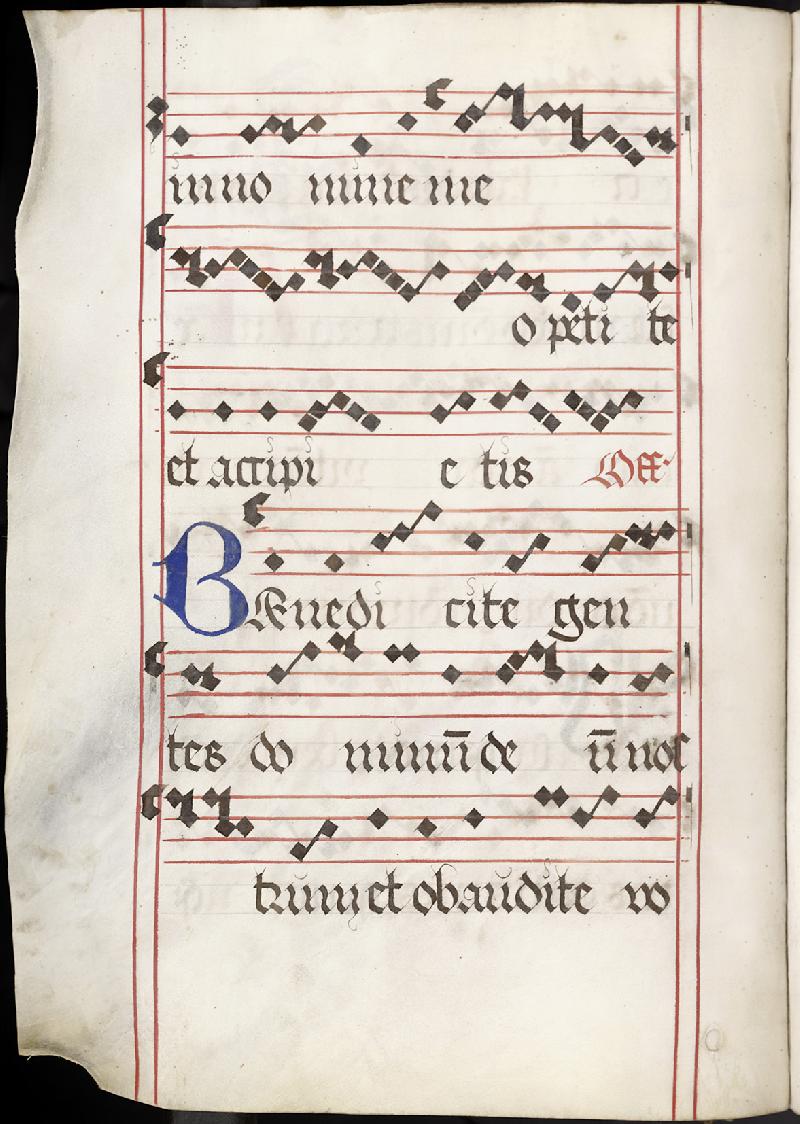 in no mine me
o peti te
et accipi e tis Off
Benedi cite gen
tes do minū de ū nos
trum et obaudite vo